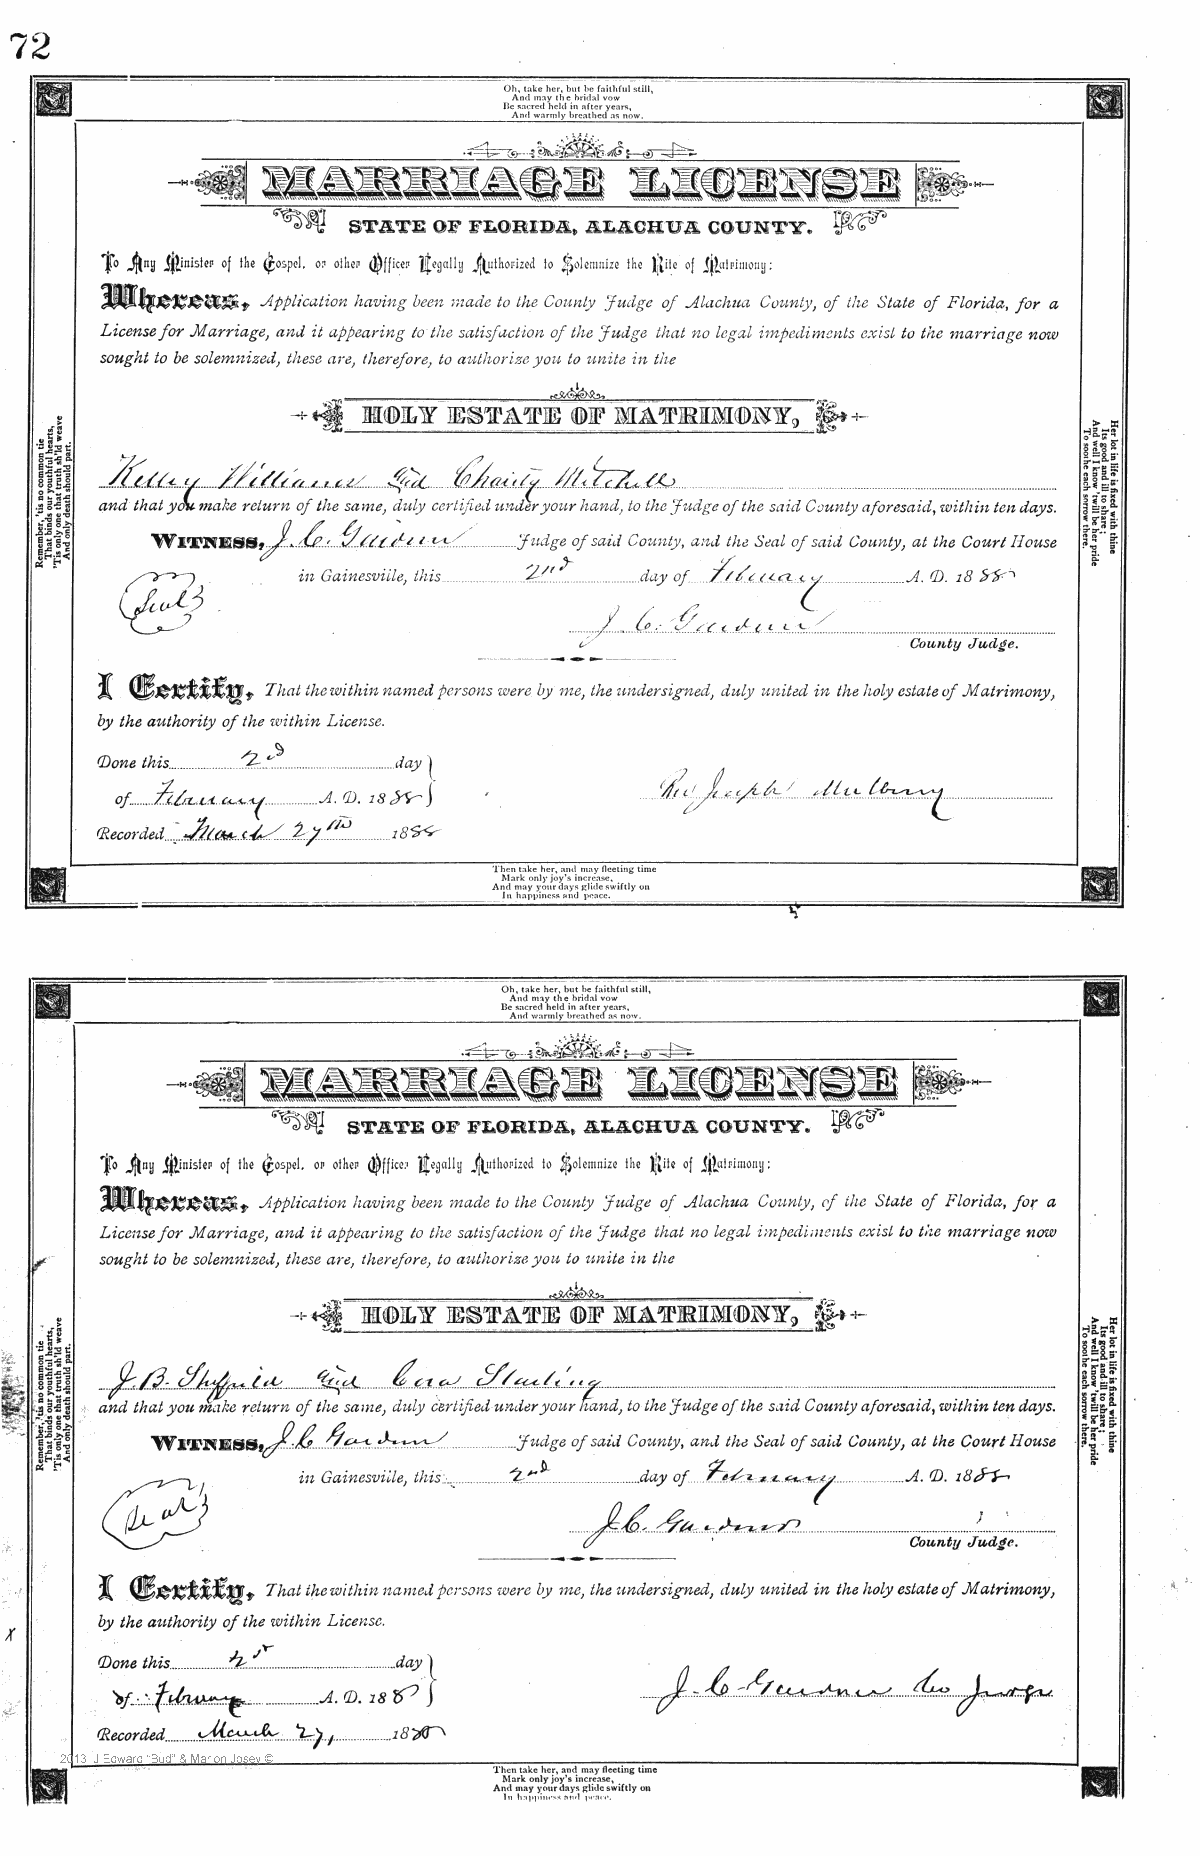 72
Oh, take her, but be faithful still,
And may the bridal vow
Be sacred held in after years,
And warmly breathed as now.
MARRIAGE LICENSE
STATE OF FLORIDA, ALACHUA COUNTY.
To Any Minister of the Gospel, or other Officer Legally Authorized to Solemnize the Rite of Matrimony:
Whereas, Application having been made to the County Judge of Alachua County, of the State of Florida, for a
License for Marriage, and it appearing to the satisfaction of the Judge that no legal impediments exist to the marriage now
sought to be solemnized, these are, therefore, to authorize you to unite in the
HOLY ESTATE OF MATRIMONY,
Kelley Williams and Charity Mitchell
and that you make return of the same, duly certified under your hand, to the Judge of the said County aforesaid, within ten days.
WITNESS, J. C. Gardner Judge of said County, and the Seal of said County, at the Court House
in Gainesville, this 2nd day of February A. D. 1888
Seal
J. C. Gardner
County Judge.
I Certify, That the within named persons were by me, the undersigned, duly united in the holy estate of Matrimony,
by the authority of the within License.
Done this 2nd day
of February A. D. 1888
Rev Joseph Mulberry
Recorded March 27th 1888
Remember, 'tis no common tie
That binds our youthful hearts,
'Tis only one that truth sh'ld weave
And only death should part.
Her lot in life is fixed with thine
Its good and ill to share;
And well I know 'twill be her pride
To soothe each sorrow there.
Then take her, and may fleeting time
Mark only joy's increase,
And may your days glide swiftly on
In happiness and peace.
Oh, take her, but be faithful still,
And may the bridal vow
Be sacred held in after years,
And warmly breathed as now.
MARRIAGE LICENSE
STATE OF FLORIDA, ALACHUA COUNTY.
To Any Minister of the Gospel, or other Officer Legally Authorized to Solemnize the Rite of Matrimony:
Whereas, Application having been made to the County Judge of Alachua County, of the State of Florida, for a
License for Marriage, and it appearing to the satisfaction of the Judge that no legal impediments exist to the marriage now
sought to be solemnized, these are, therefore, to authorize you to unite in the
HOLY ESTATE OF MATRIMONY,
J. B. Sheffield and Cora Starling
and that you make return of the same, duly certified under your hand, to the Judge of the said County aforesaid, within ten days.
WITNESS, J. C Gardner Judge of said County, and the Seal of said County, at the Court House
in Gainesville, this 2nd day of February A. D. 1888
Seal
J. C. Gardner
County Judge.
I Certify, That the within named persons were by me, the undersigned, duly united in the holy estate of Matrimony,
by the authority of the within License.
x
Done this day
of February A. D. 188
J. C. Gardner Co Judge
Recorded March 27, 1888
Remember, 'tis no common tie
That binds our youthful hearts,
'Tis only one that truth sh'ld weave
And only death should part.
Her lot in life is fixed with thine
Its good and ill to share;
And well I know 'twill be her pride
To soothe each sorrow there.
2013 J Edward "Bud" & Marion Josey ©
Then take her, and may fleeting time
Mark only joy's increase,
And may your days glide swiftly on
In happiness and peace.